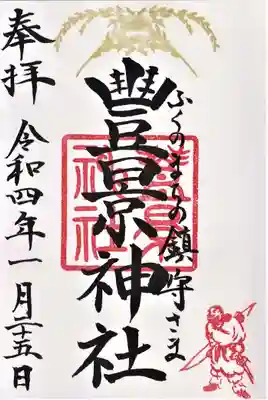 ふくのまちの鎮守さま
豐景神社
奉拝
令和四年一月二十五日